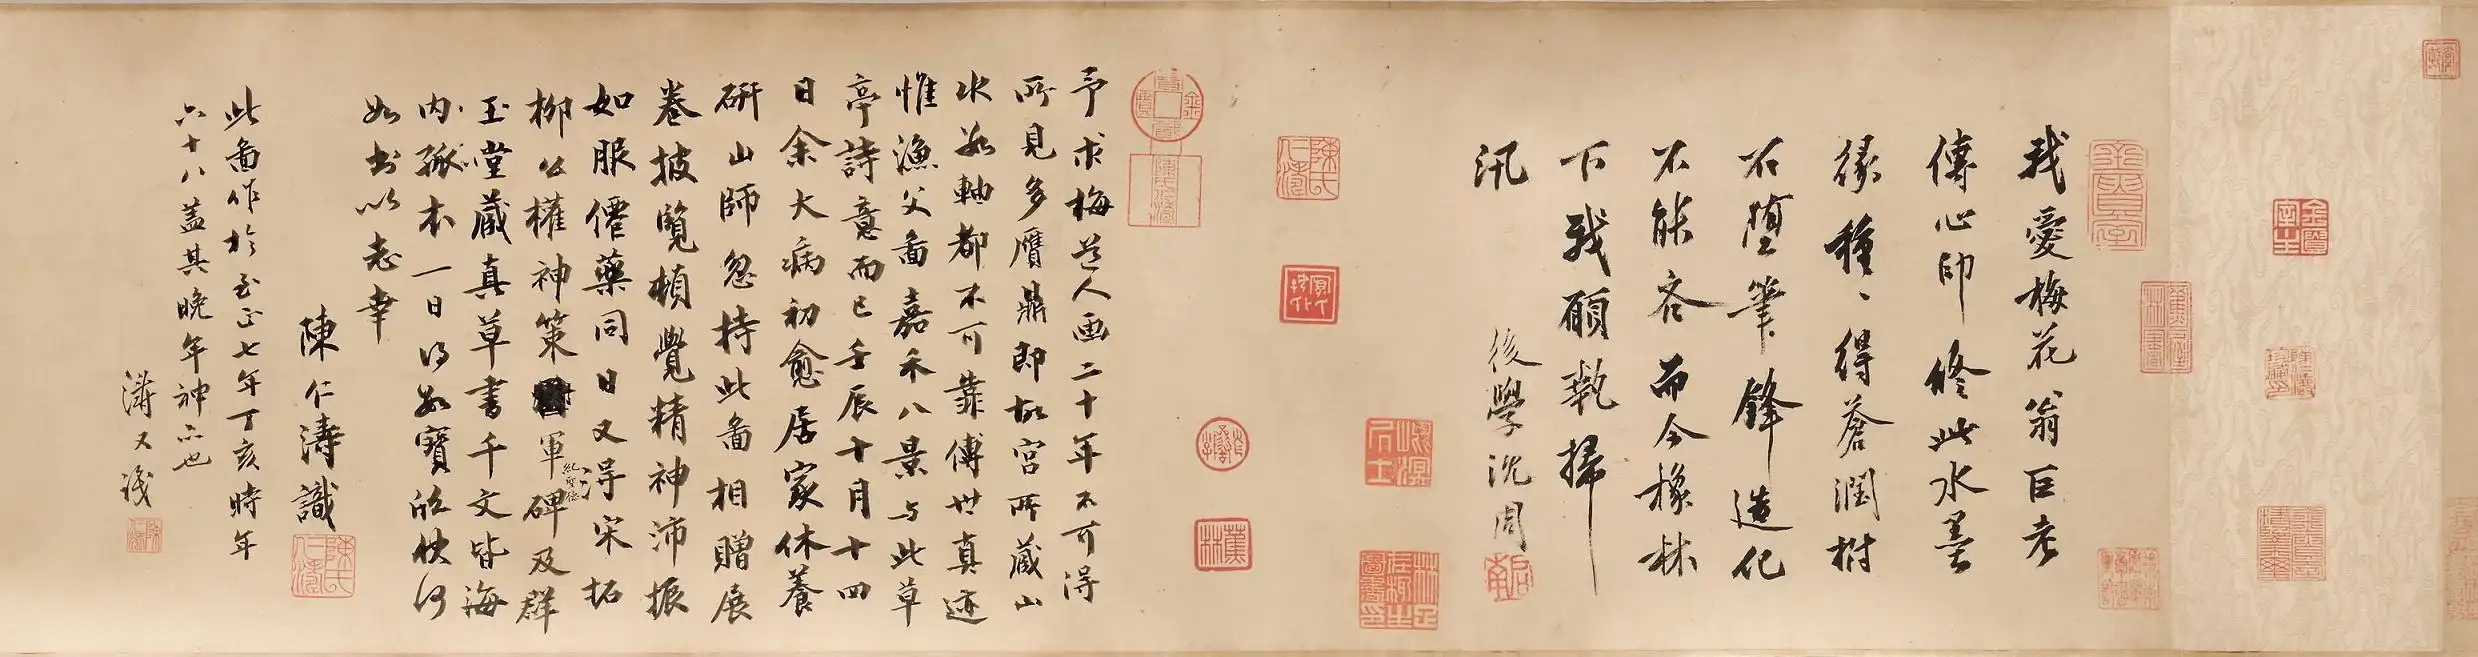 我愛梅花翁巨老
傳心印修此水墨
緣種〻得蒼潤樹
石墮筆鋒造化
不能容而今橡林
下我願執掃
汛
後學沈周
予求梅道人画二十年不可得
所見多贗鼎即故宮所藏山
水數軸都不可靠傳世真迹
惟漁父圖嘉禾八景与此草
亭詩意而已壬辰十月十四
日余大病初愈居家休養
研山師忽持此圖相贈展
卷披覽頓覺精神沛振
如服僊藥同日又得宋拓
柳公權神策軍碑及群
紀聖德
玉堂藏真草書千文皆海
内孤本一日得數寶欣快何
如書以志幸
陳仁濤識
此圖作於至正七年丁亥時年
六十八蓋其晚年神品也
濤又識